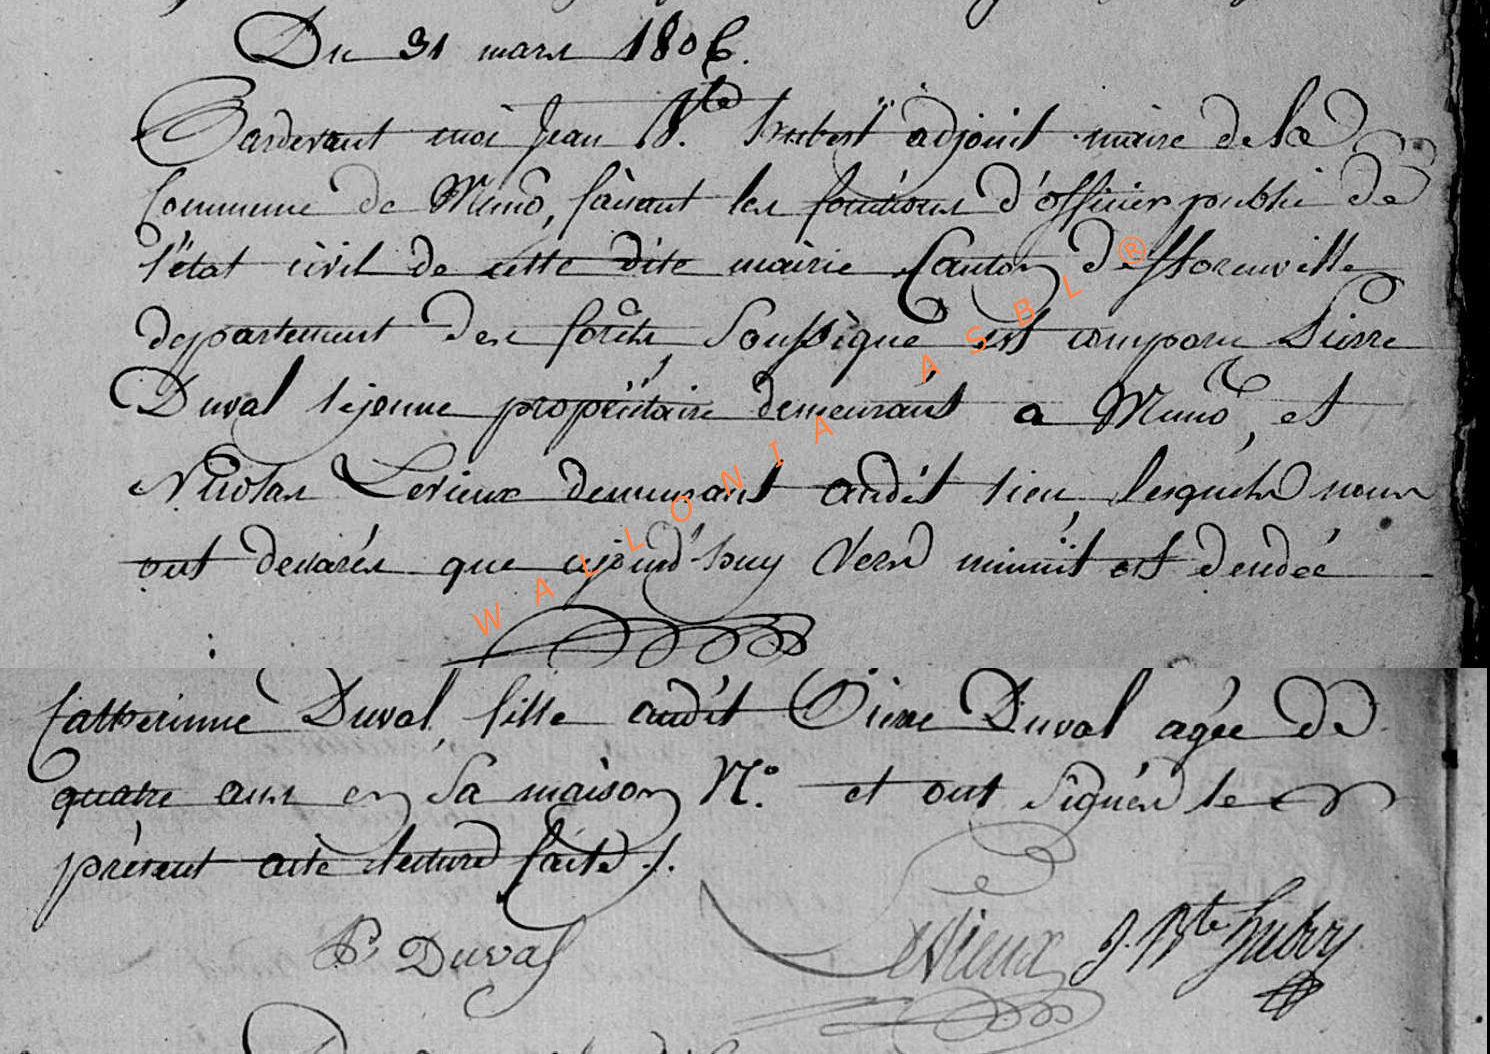 Du 31 mars 1806.
Pardevant moi Jean Bte. hubert adjoint maire de la
Commune de Muno, faisant les fonctions d'officier public de
l'état civil de cette dite mairie Canton de fflorenville
departement des forêts, Soussigné est comparu Pierre
Duval lejeune propriétaire demeurant a Muno, et
Nicolas Lerieux demeurant audit lieu, lesquels nous
ont declarés que ajourd'huy vers minuit est dendée
Catherinne Duval, fille audit Pierre Duval agée de
quatre ans en Sa maison N.° et ont Signés le
présent acte lecture faite ./.
P Duval
Lerieux J. Bte hubry
WALLONIA ASBL ®